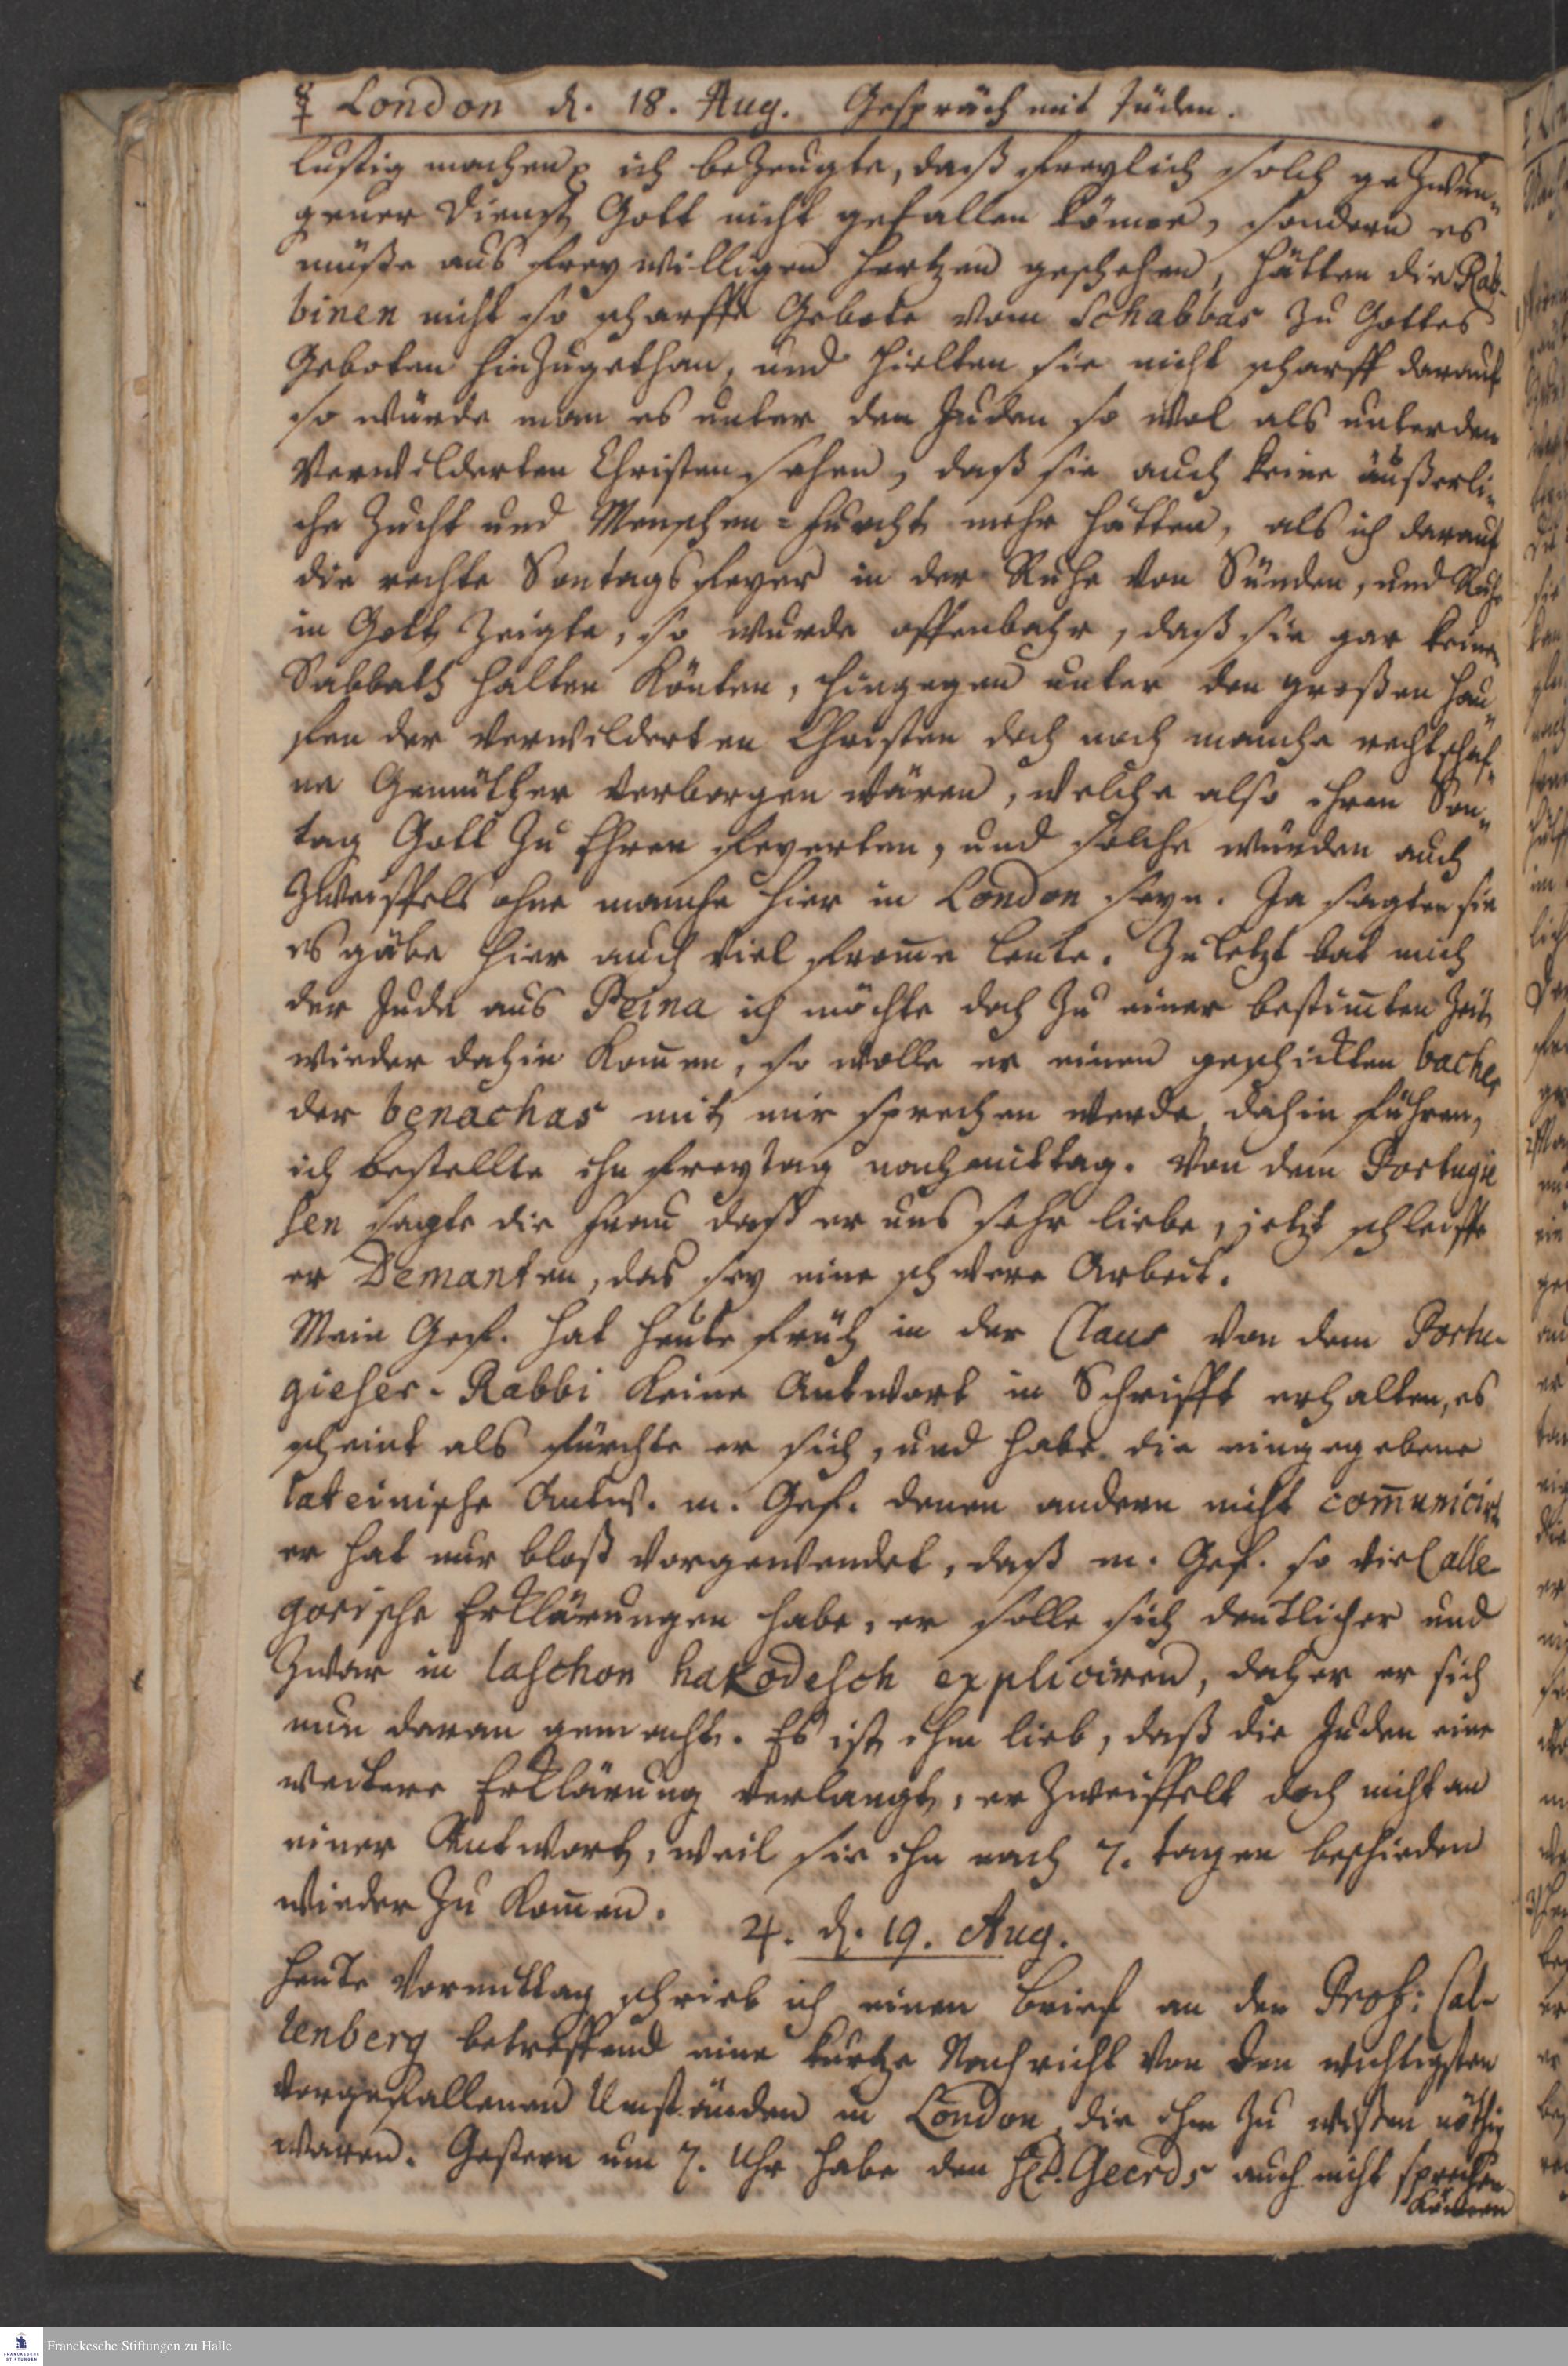 ☿ London d. 18. Aug. Gespräch mit Jüden.
lustig machen; ich bezeugte, daß freylich solch gezwun„
gener Dienst Gott nicht gefallen könne, sondern es
müße aus freywilligen Hertzen geschehen, hätten die Rab„
binen nicht so scharffe Gebote vom Schabbas zu Gottes
Geboten hinzugethan, und hielten sie nicht scharff darauf
so würde man es unter den Juden so wol als unter den
verwilderten Christen sehen, daß sie auch keine äußerli„
che Zucht und Menschen=furcht mehr hätten, als ich darauf
die rechte Sontagsfeyer in der Ruhe von Sünden, und Ruhe
in Gott zeigte, so wurde offenbahr, daß sie gar keinen
Sabbath halten könten, hingegen unter den großen Hau„
fen der verwilderten Christen doch noch manche rechtschaf„
ne Gemüther verborgen wären, welche also ihren Son„
tag Gott zu Ehren feyerten, und solche würden auch
Zweiffels ohne manche hier in London seyn. Ja sagten sie
es gäbe hier auch viel from̅e Leute. Zuletzt bat mich
der Jude aus Peina ich möchte doch zu einer bestim̅ten Zeit
wieder dahin kom̅en, so wolle er einen geschickten bacher
der benachas mit mir sprechen werde, dahin führen,
ich bestellte ihn freytag nachmittag. Von dem Portugie
sen sagte die Frau daß er uns sehr liebe, jetzt schleiffe
er Demanten, das sey eine schwere Arbeit.
Mein Gef. hat heute früh in der Claus von dem Portu-
gieser-Rabbi keine Antwort in Schrifft erhalten, es
scheint als fürchte er sich, und habe die eingegebene
lateinische Antw. m. Gef. denen andern nicht com̅unicirt
er hat nur bloß vorgewendet, daß m. Gef. so viel alle-
gorische Erklärungen habe, er solle sich deutlicher und
zwar in laschon hakodesch expliciren, daher er sich
nun daran gemacht. Es ist ihm lieb, daß die Juden eine
weitere Erklärung verlangt, er zweiffelt doch nicht an
einer Antwort, weil sie ihn nach 7. tagen beschieden
wieder zu kom̅en.
♃. d. 19. Aug.
Heute Vormittag schrieb ich einen Brief an den Prof: Cal-
lenberg betreffend eine kurtze Nachricht von den wichtigsten
vorgefallenen Umständen in London, die ihm zu wißen nöthig
waren. Gestern um 7. Uhr habe den HEd. Geerds auch nicht sprechen
können
Franckesche Stiftungen zu Halle